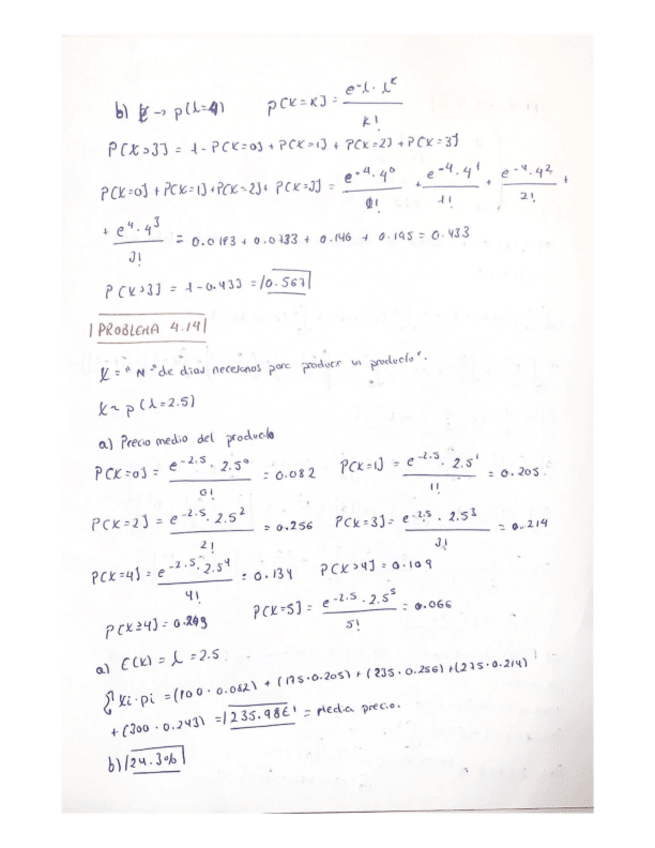 b) X → p(λ=4) P[X=K] = e^-λ · λ^K / K!
P[X>3] = 1 - P[X=0] + P[X=1] + P[X=2] + P[X=3]
P[X=0] + P[X=1] + P[X=2] + P[X=3] = e^-4 · 4^0 / 0! + e^-4 · 4^1 / 1! + e^-4 · 4^2 / 2! +
+ e^4 · 4^3 / 3! = 0.0183 + 0.0733 + 0.146 + 0.195 = 0.433
P[X>3] = 1 - 0.433 = 0.567
PROBLEMA 4.14
X = "Nº de dias necesarios para producir un producto".
X ~ p(λ=2.5)
a) Precio medio del producto
P[X=0] = e^-2.5 · 2.5^0 / 0! = 0.082 P[X=1] = e^-2.5 · 2.5^1 / 1! = 0.205
P[X=2] = e^-2.5 · 2.5^2 / 2! = 0.256 P[X=3] = e^-2.5 · 2.5^3 / 3! = 0.214
P[X=4] = e^-2.5 · 2.5^4 / 4! = 0.134 P[X>4] = 0.109
P[X≥4] = 0.243 P[X=5] = e^-2.5 · 2.5^5 / 5! = 0.066
a) E(X) = λ = 2.5
Σ xi·pi = (100 · 0.082) + (175 · 0.205) + (235 · 0.256) + (275 · 0.214)
+ (300 · 0.243) = 235.98€ = Media precio.
b) 24.3%